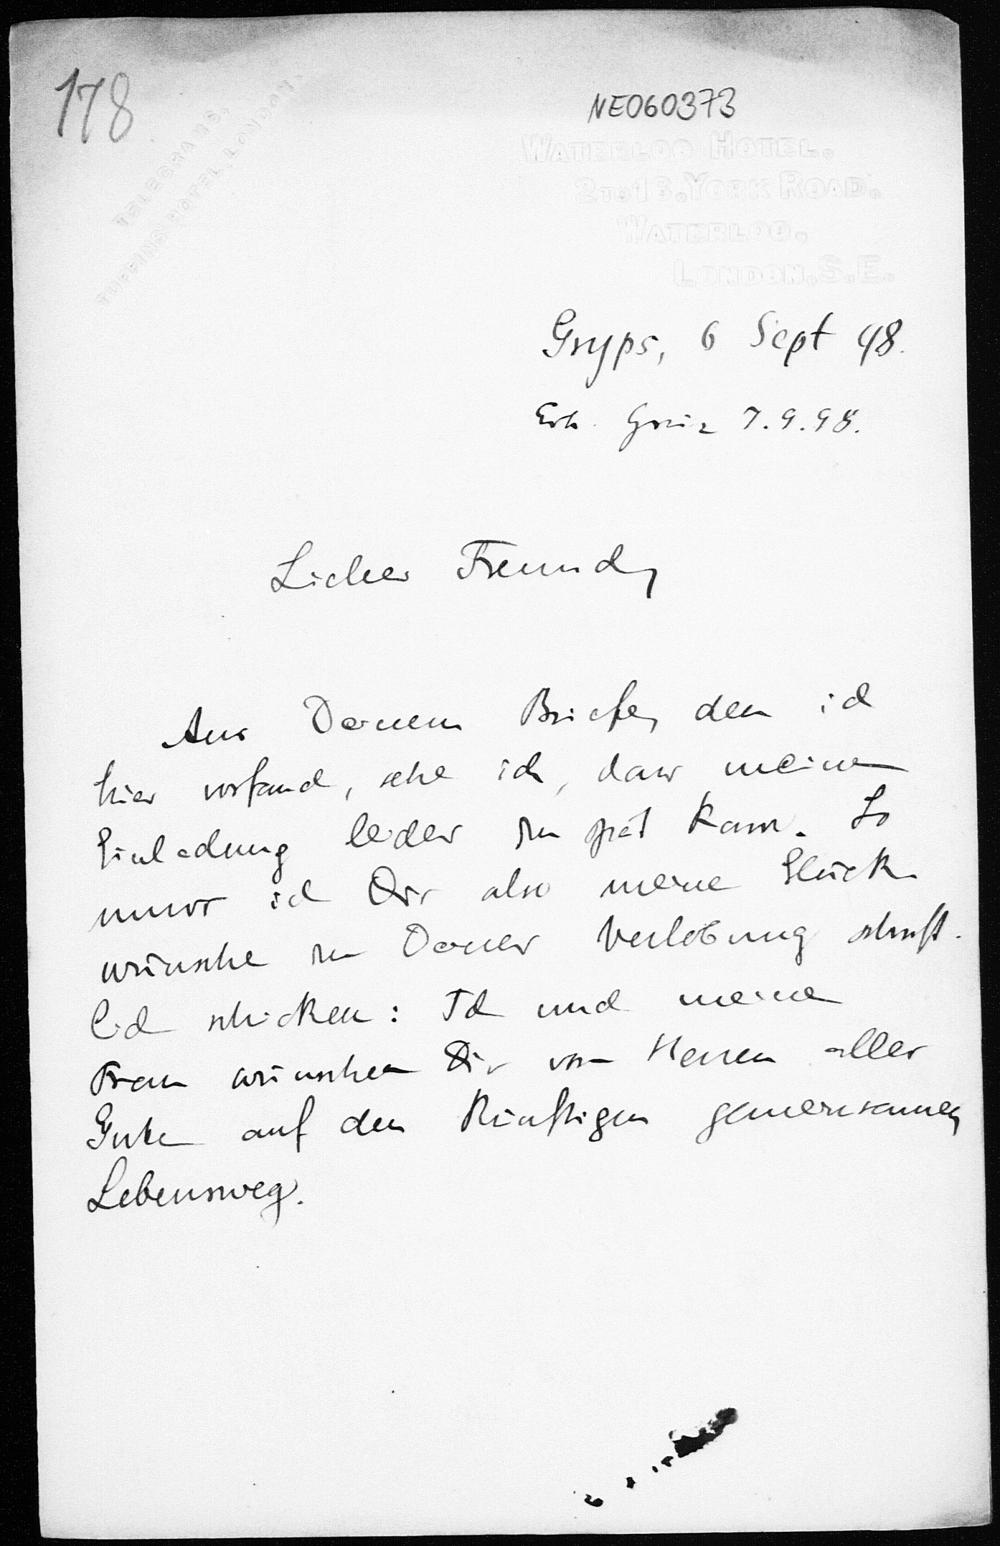 178
NE060373
TELEGRAMS,
TUFFINS HOTEL, LONDON.
WATERLOO HOTEL.
2 TO 16. YORK ROAD.
WATERLOO.
LONDON, S.E.
Gryps, 6 Sept 98.
Erh. Graz 7.9.98.
Lieber Freund,
Aus Deinem Briefe, den ich
hier vorfand, sehe ich, dass meine
Einladung leider zu spät kam. So
muss ich Dir also meine Glück-
wünsche zu Deiner Verlobung schrift-
lich schicken: Ich und meine
Frau wünschen Dir von Herzen alles
Gute auf den künftigen gemeinsamen
Lebensweg.